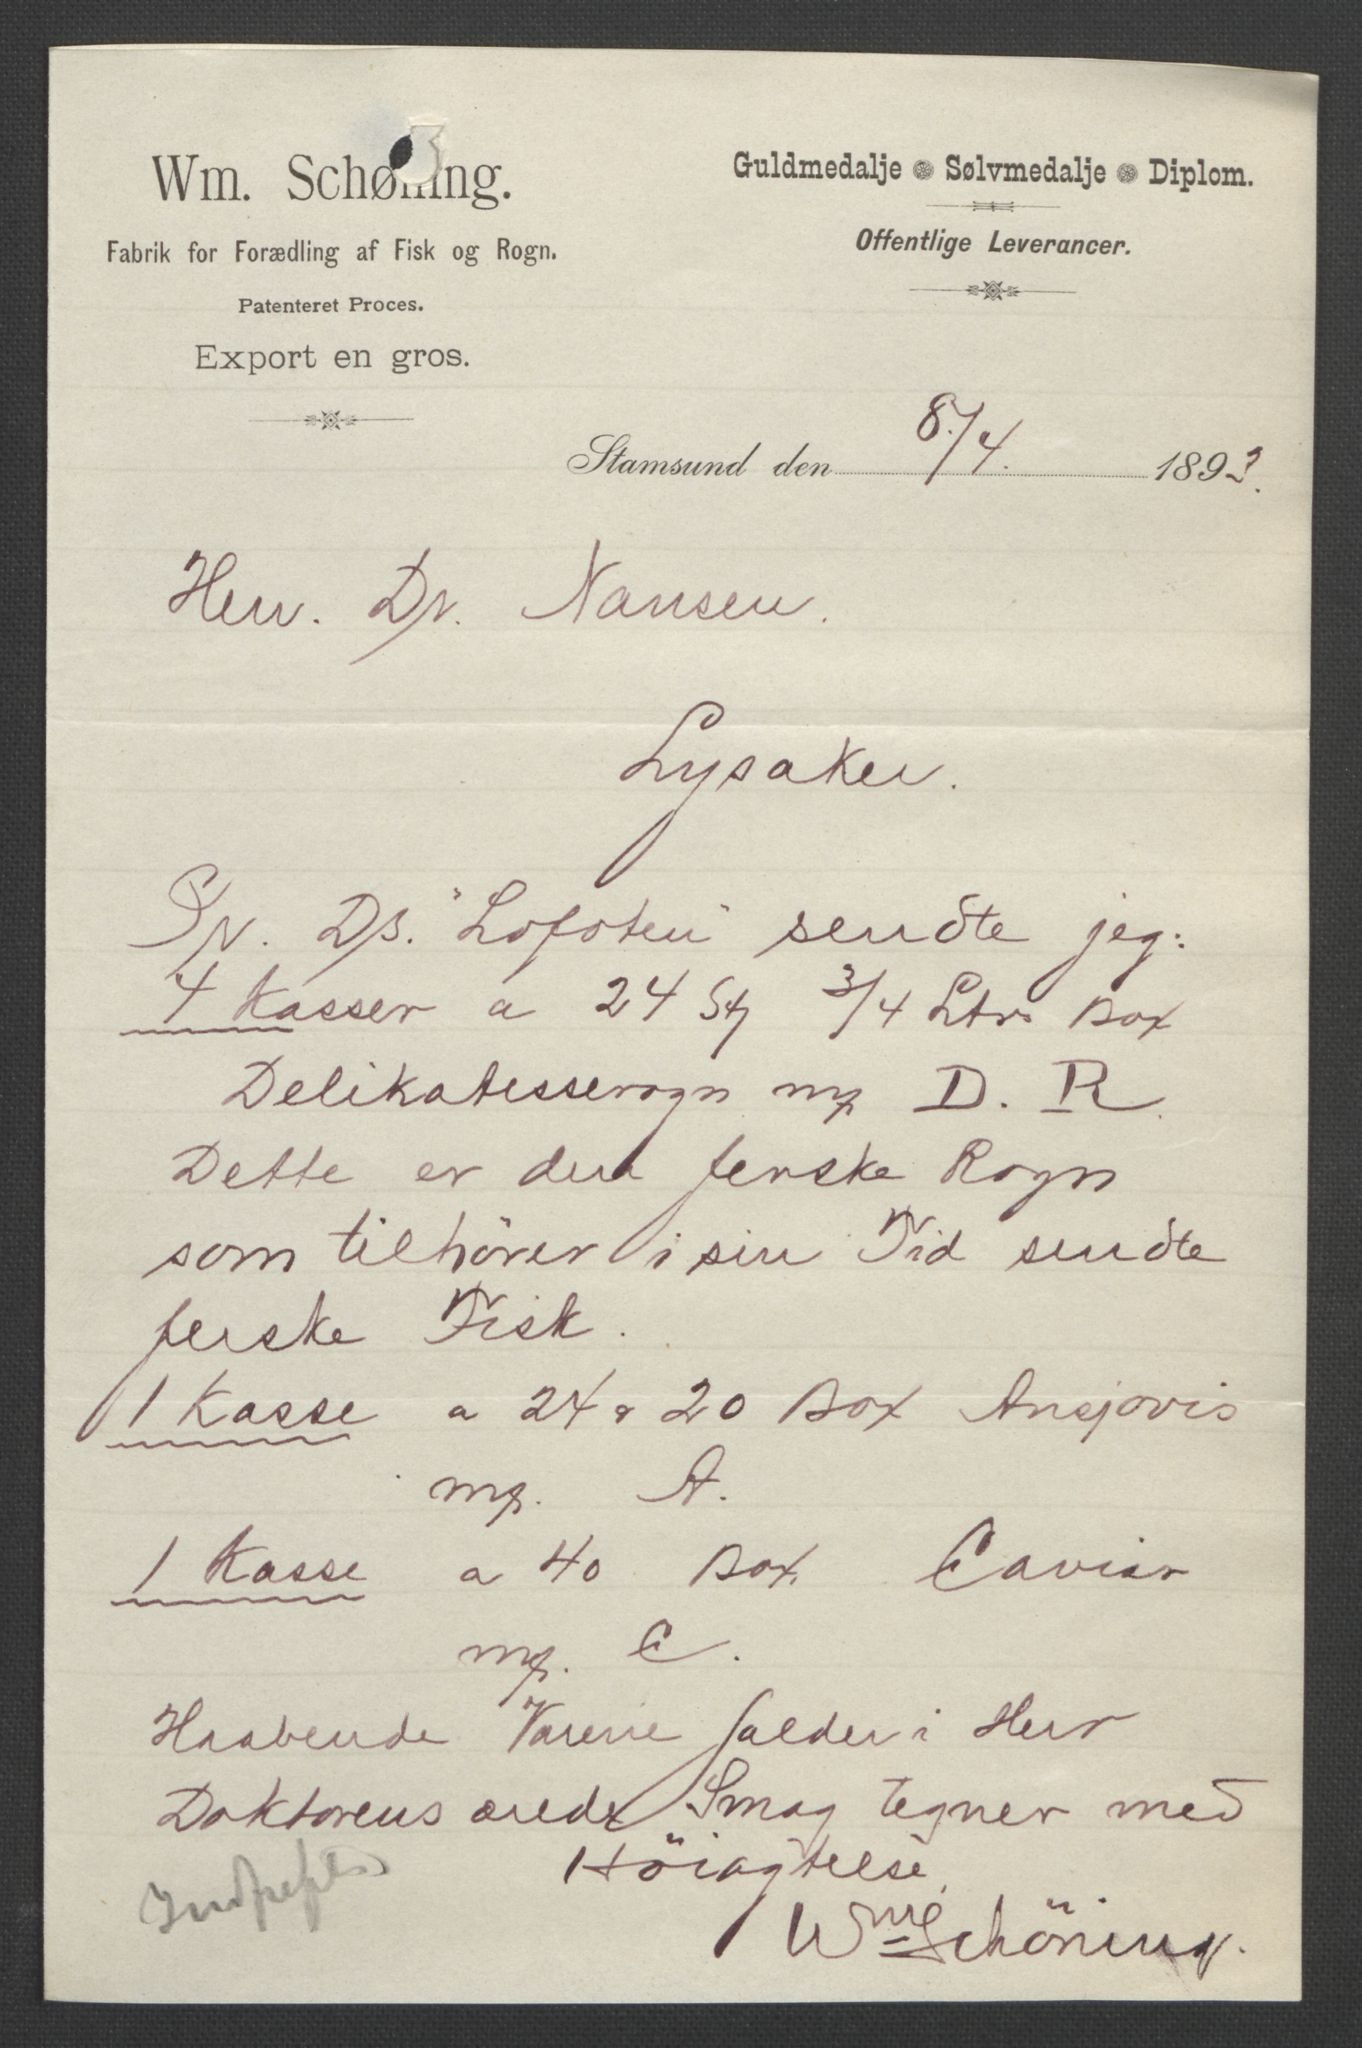 Wm. Schøning.
Fabrik for Forædling af Fisk og Rogn.
Patenteret Proces.
Export en gros.
Guldmedalje Sølvmedalje Diplom.
Offentlige Leverancer.
Stamsund den 8./4. 1893.
Herr. Dr. Nansen.
Lysaker.
Pr. D/s. "Lofoten" sendte jeg:
4 Kasser a 24 St 3/4 Ltrs Box
Delikatesserogn mrk D. R.
Dette er den ferske Rogn
som tilhører i sin Tid sendte
ferske Fisk.
1 Kasse a 24 a 20 Box Ansjovis
mrk. A.
1 Kasse a 40 Box. Caviar
mrk. C.
Haabende Varene falder i Herr
Doktorens ærede Smag tegner med
Höiagtelse,
Wm Schöning.